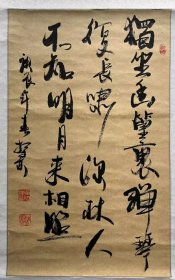 獨坐幽篁裏彈琴
復長嘯深林人
不知明月來相照
年春